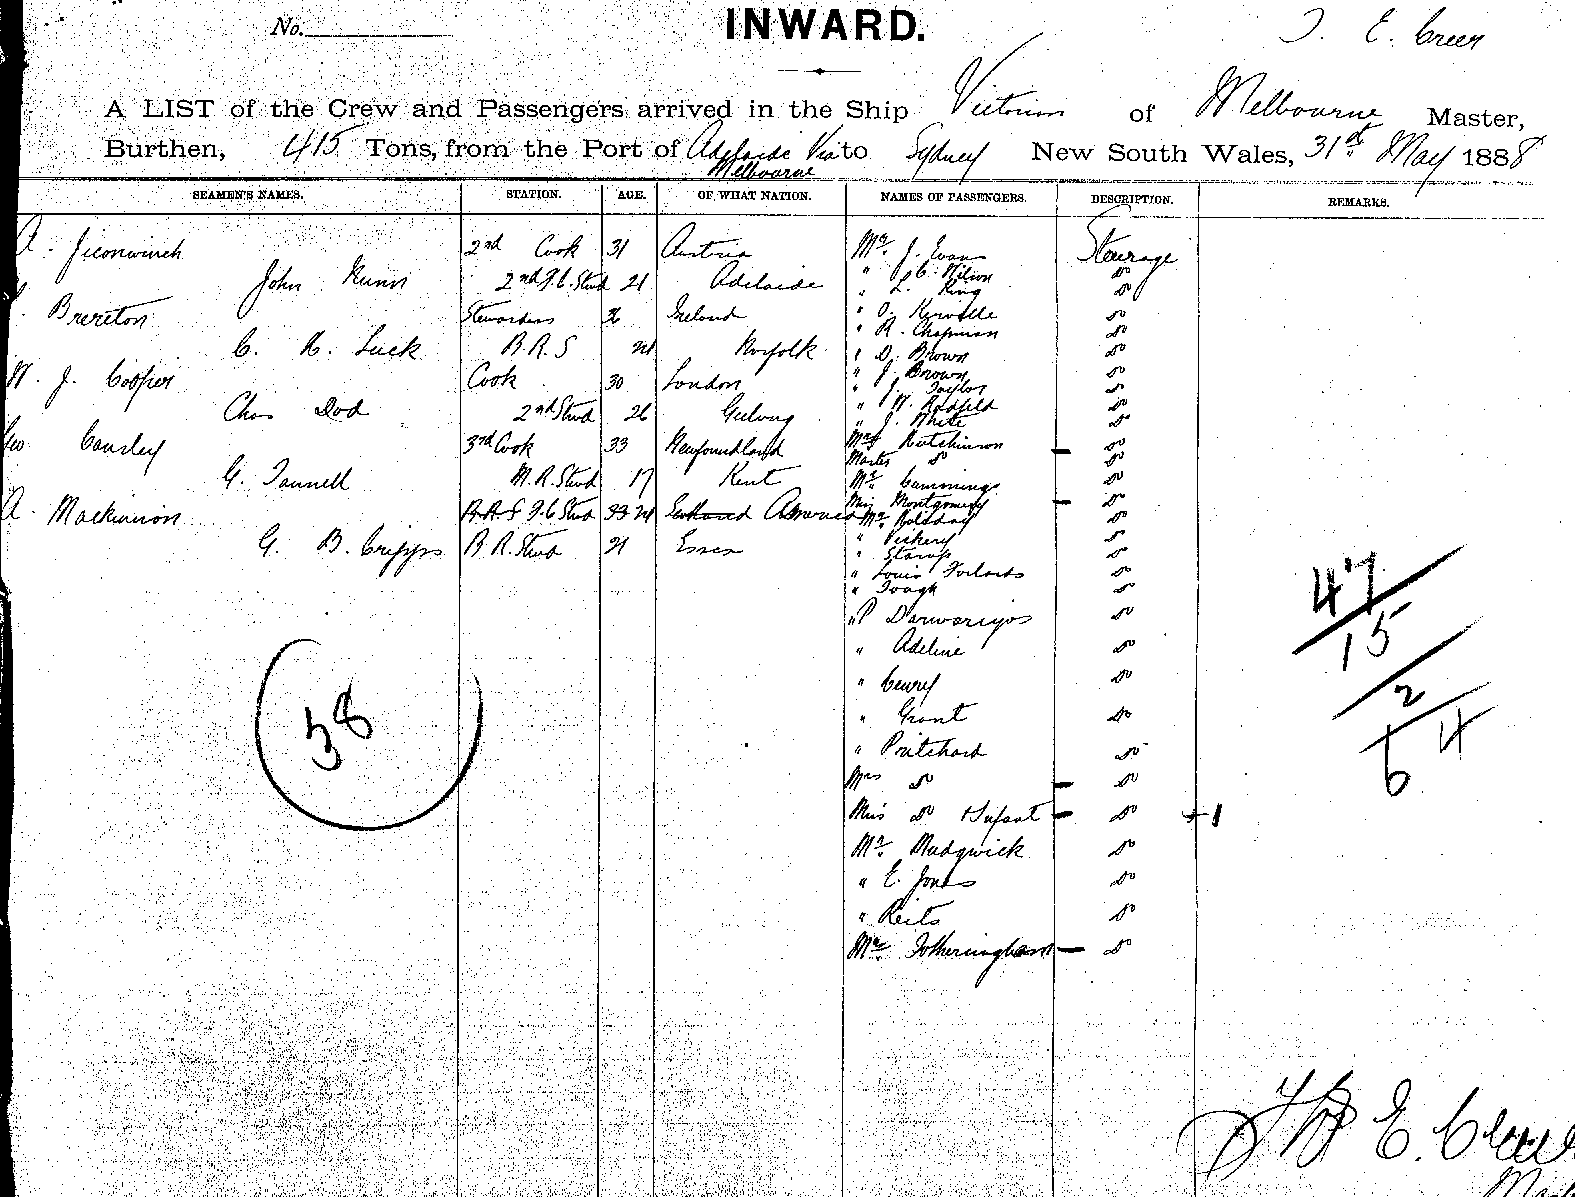 No.
INWARD.
J. E. Creer
A LIST of the Crew and Passengers arrived in the Ship Victorian of Melbourne Master,
Burthen, 415 Tons, from the Port of Adelaide Via to Sydney New South Wales, 31st May 1888
Melbourne
SEAMEN'S NAMES. STATION. AGE. OF WHAT NATION. NAMES OF PASSENGERS. DESCRIPTION. REMARKS.
A. 2nd Cook 31 Austria Mr. J. Evans Steerage
John Nunn 2nd F.C. Stwd 21 Adelaide " Wilson do
" L. King do
Brereton Stewardess 26 Ireland " O. do
" R. Chapman do
C. R. Luck B.R.S 21 Norfolk " D. Brown do
W. J. Cooper Cook 30 London " J. Brown do
" J. Taylor do
Chas Dod 2nd Stwd 26 Geelong " W. do
" J. White do
Geo Cansley 3rd Cook 33 Newfoundland Mrs Hutchinson do
Master do do
G. Tannell M.R. Stwd 17 Kent Mr. Cummings do
A. Mackinnon B.R.S F.C Stwd 33 21 Scotland America Miss Montgomery do
Mr. Holiday do
G. B. Cripps B.R. Stwd 21 Essex " Vickery do
" Stamp do
" Louis do
" Tough do
" P do
" Adeline do
" do
" Grant do
" Pritchard do
Mrs do do
Miss do & Infant do +1
Mr. Madgwick do
" E. Jones do
" Reits do
Mrs Fotheringham do
38
47
15
2
6 4
E. Creer